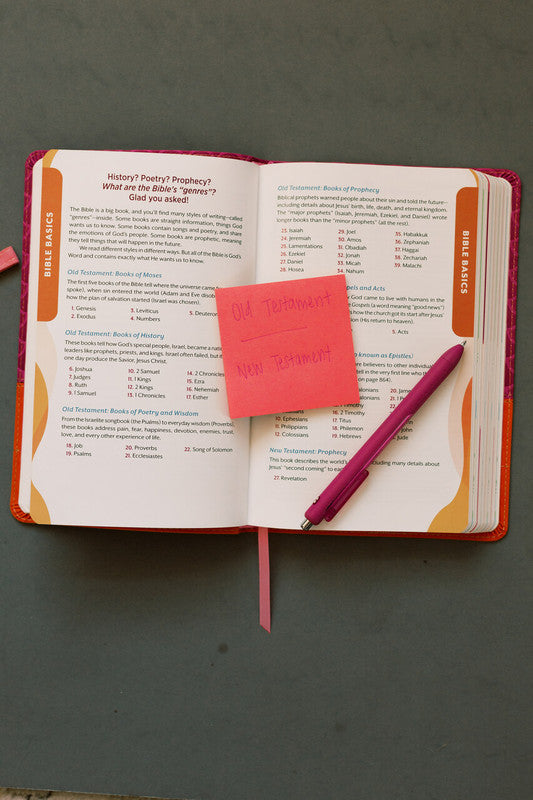 BIBLE BASICS
History? Poetry? Prophecy?
What are the Bible's "genres"?
Glad you asked!
The Bible is a big book, and you'll find many styles of writing—called
"genres"—inside. Some books are straight information, things God
wants us to know. Some books contain songs and poetry, and share
the emotions of God's people. Some books are prophetic, meaning
they tell things that will happen in the future.
We read different styles in different ways. But all of the Bible is God's
Word and contains exactly what He wants us to know.
Old Testament: Books of Moses
The first five books of the Bible tell where the universe came
spoke), when sin entered the world (Adam and Eve
how the plan of salvation started (Israel was chosen).
1. Genesis 3. Leviticus 5.
2. Exodus 4. Numbers
Old Testament: Books of History
These books tell how God's special people, Israel, became a
leaders like prophets, priests, and kings. Israel often failed, but
one day produce the Savior, Jesus Christ.
6. Joshua 10. 2 Samuel 14. 2 Chronicles
7. Judges 11. 1 Kings 15. Ezra
8. Ruth 12. 2 Kings 16. Nehemiah
9. 1 Samuel 13. 1 Chronicles 17. Esther
Old Testament: Books of Poetry and Wisdom
From the Israelite songbook (the Psalms) to everyday wisdom (Proverbs),
these books address pain, fear, happiness, devotion, enemies, trust,
love, and every other experience of life.
18. Job 20. Proverbs 22. Song of Solomon
19. Psalms 21. Ecclesiastes
Old Testament: Books of Prophecy
Biblical prophets warned people about their sin and told the future—
including details about Jesus' birth, life, death, and eternal kingdom.
The "major prophets" (Isaiah, Jeremiah, Ezekiel, and Daniel) wrote
longer books than the "minor prophets" (all the rest).
23. Isaiah 29. Joel 35. Habakkuk
24. Jeremiah 30. Amos 36. Zephaniah
25. Lamentations 31. Obadiah 37. Haggai
26. Ezekiel 32. Jonah 38. Zechariah
27. Daniel 33. Micah 39. Malachi
28. Hosea 34. Nahum
and Acts
God came to live with humans in the
Gospels (a word meaning "good news")
how the church got its start after Jesus'
(His return to heaven).
5. Acts
known as Epistles)
believers to other
in the very first
on page 864).
10. Ephesians
11. Philippians 16. 2 Timothy
12. Colossians 17. Titus
18. Philemon
19. Hebrews Jude
New Testament: Prophecy
This book describes the world's including many details about
Jesus' "second coming" to
27. Revelation
BIBLE BASICS
Old Testament
New Testament